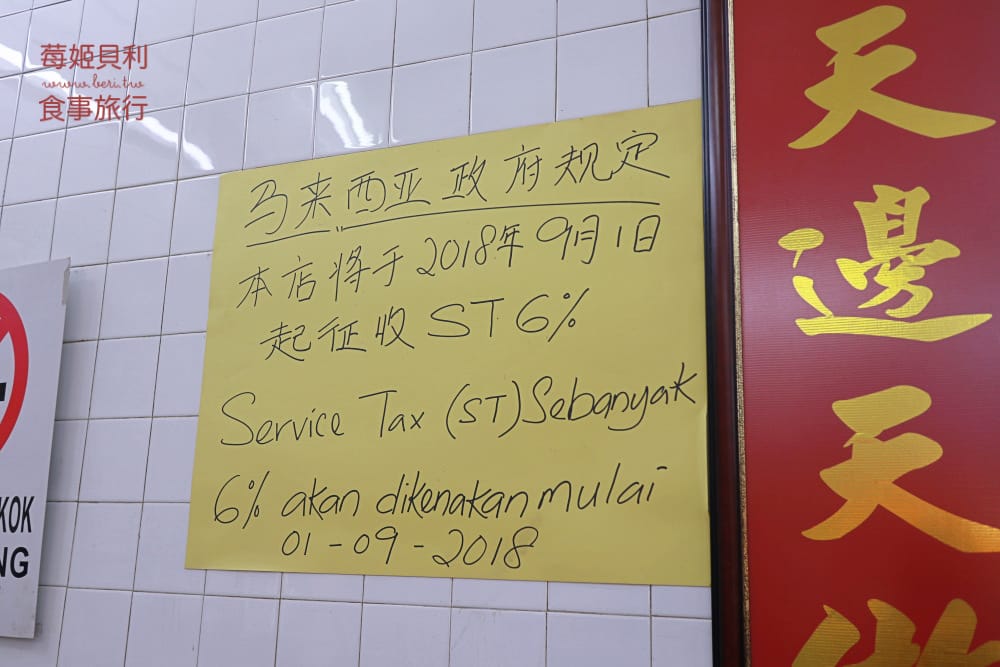 莓姬貝利
www.beri.tw
食事旅行
马来西亚政府规定
本店将于2018年9月1日
起征收ST6%
Service Tax (ST) Sebanyak
6% akan dikenakan mulai
01-09-2018
KOK
NG
天邊天